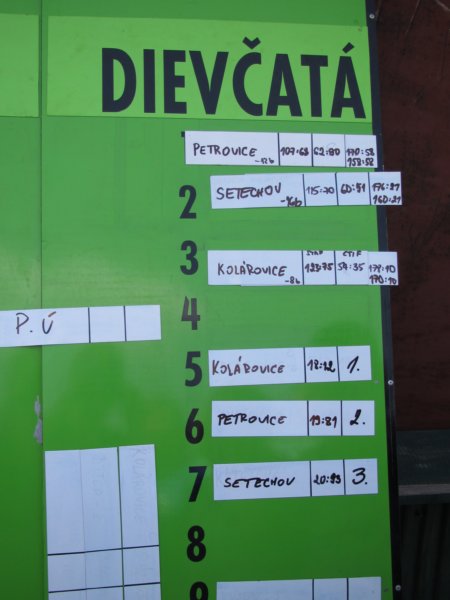 DIEVČATÁ
PETROVICE -12b 107:63 62:80 170:58
158:58
2 SETECHOV -16b 115:70 60:51 176:21
160:21
3 KOLÁROVICE -8b 123:75 54:35 178:10
170:10
P.Ú 4
5 KOLÁROVICE 18:42 1.
6 PETROVICE 19:81 2.
7 SETECHOV 20:93 3.
8
9